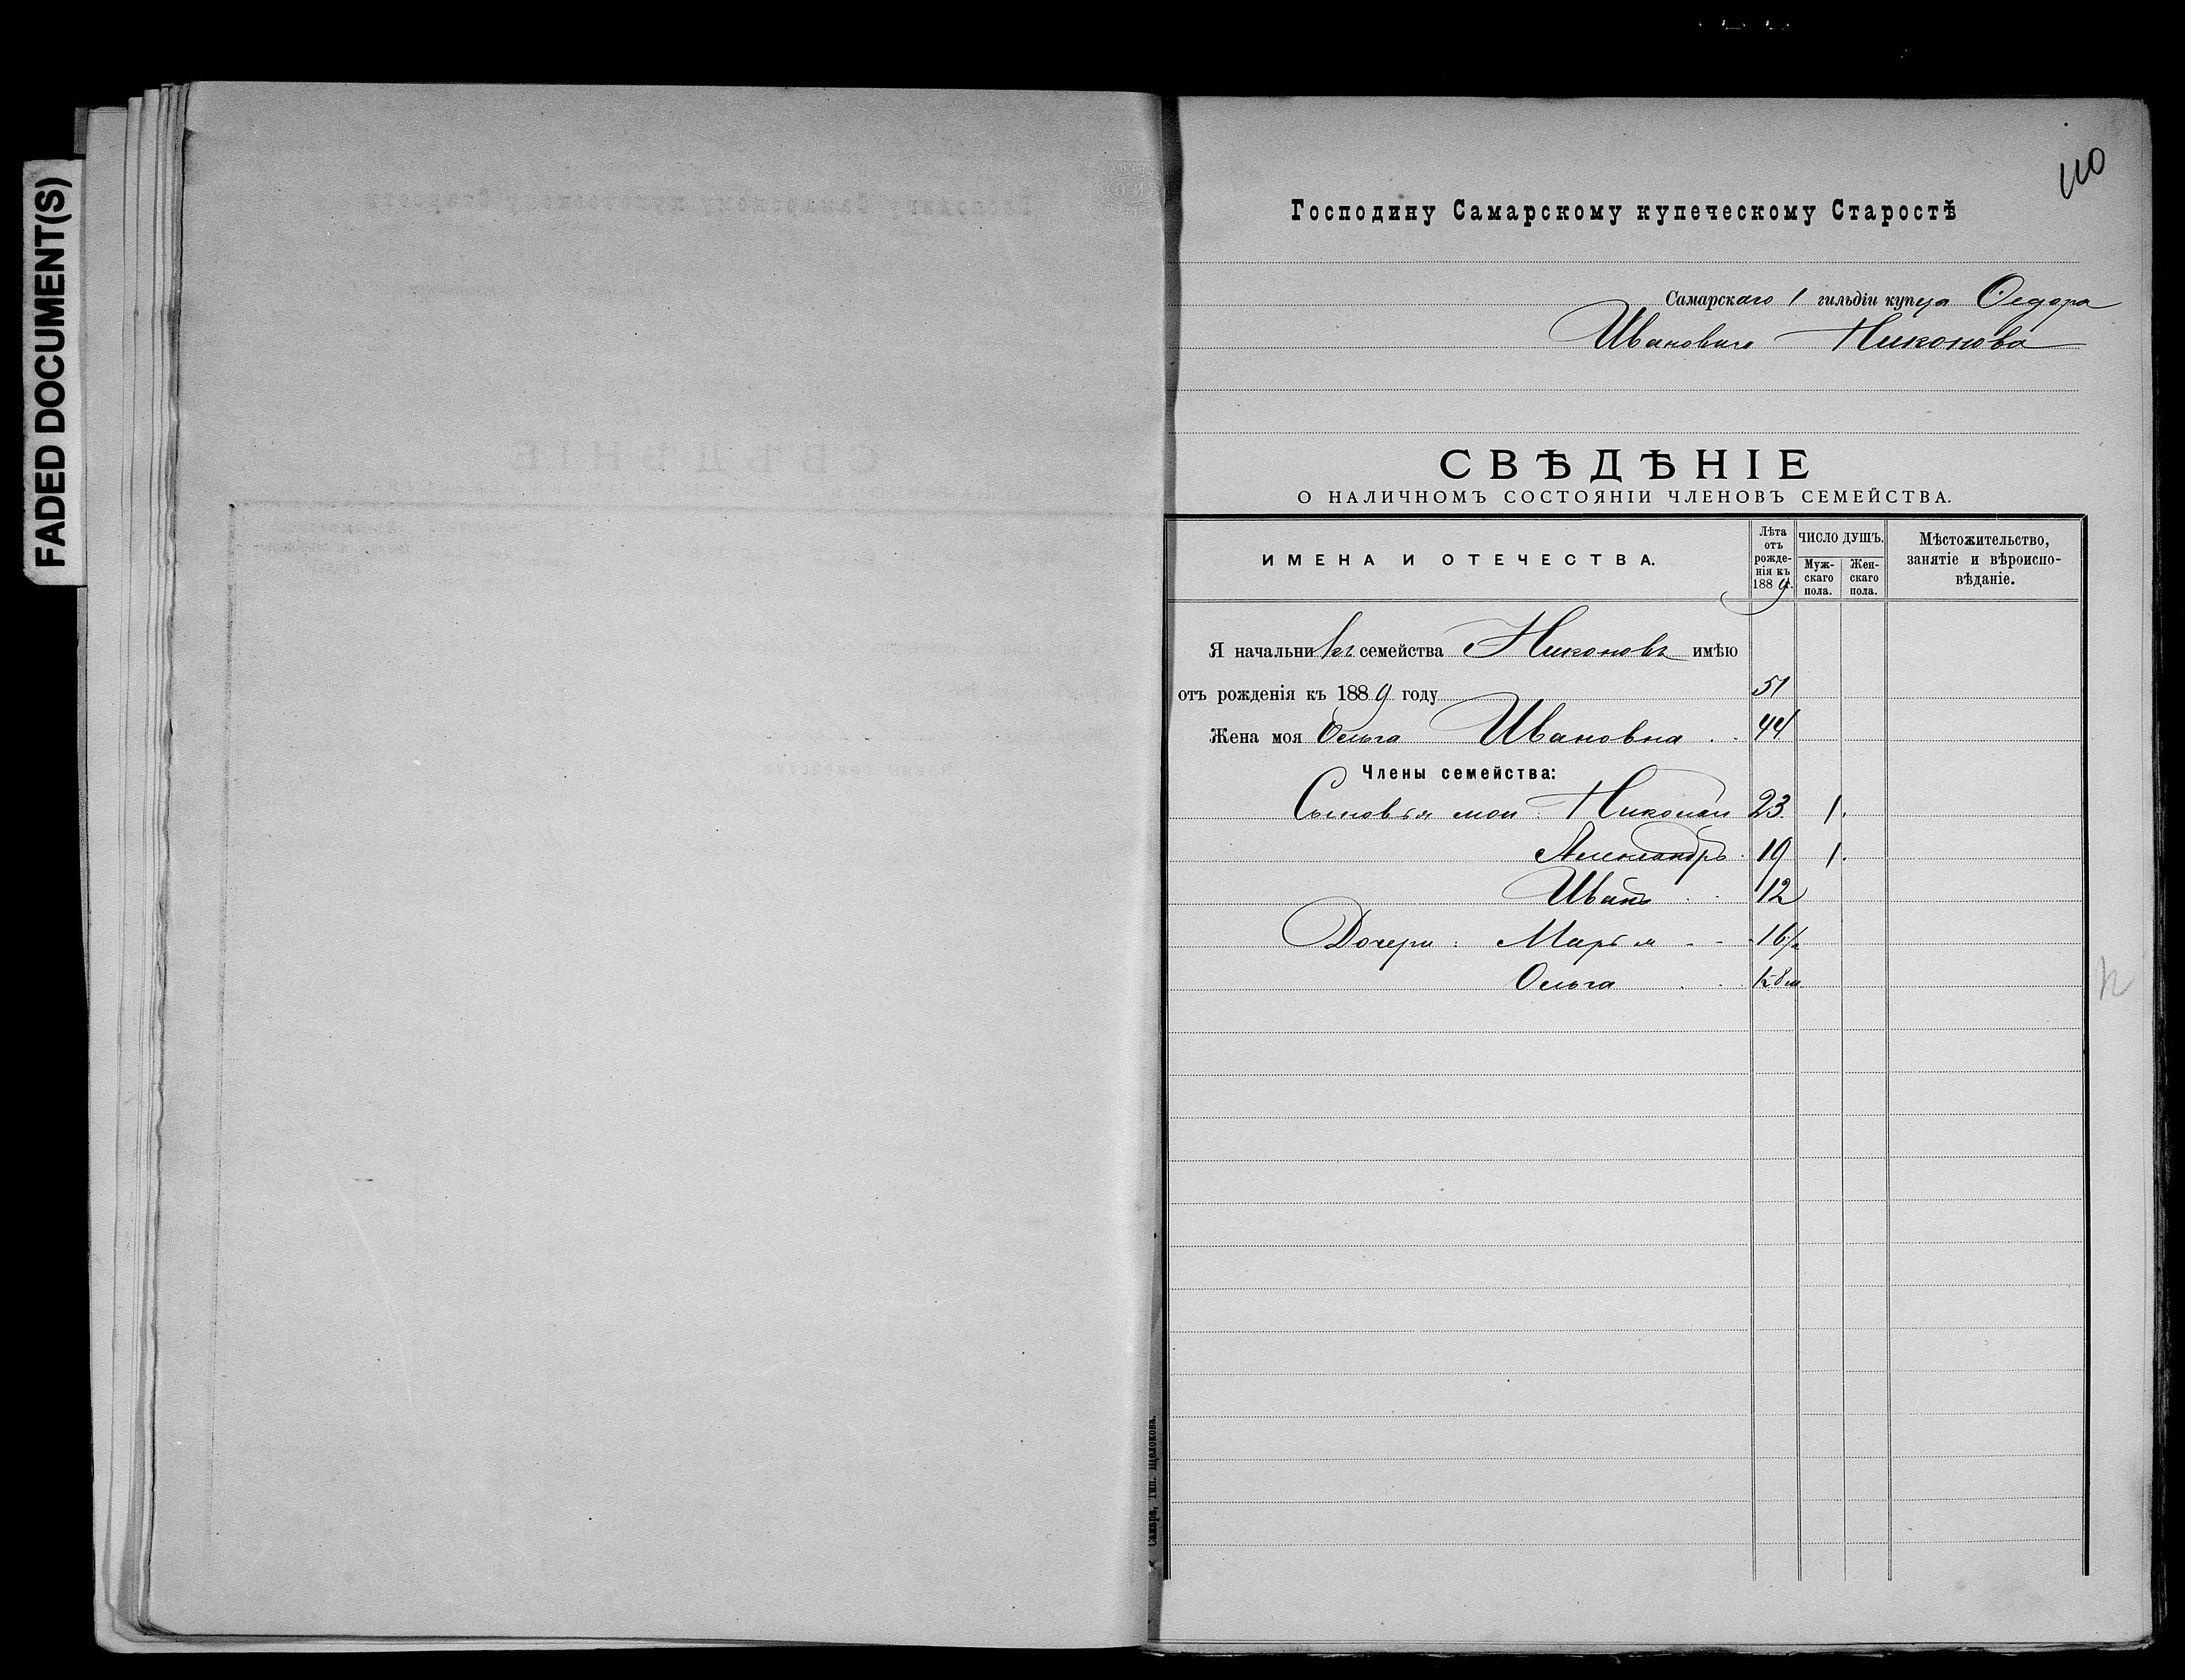 FADED DOCUMENT(S)
110
Господину Самарскому купеческому Старостѣ
Самарскаго 1 гильдіи купца Ѳедора
Ивановича Никонова
СВѢДѢНІЕ
О НАЛИЧНОМЪ СОСТОЯНІИ ЧЛЕНОВЪ СЕМЕЙСТВА.
ИМЕНА И ОТЕЧЕСТВА.
Лѣта отъ рожденія къ 1889 г.
ЧИСЛО ДУШЪ.
Мужскаго пола.
Женскаго пола.
Мѣстожительство, занятіе и вѣроисповѣданіе.
Я начальникъ семейства Никоновъ имѣю
отъ рожденія къ 1889 году 51
Жена моя Ольга Ивановна . . 44
Члены семейства:
Сыновья мои: Николай 23 1.
Александръ . 19 1.
Иванъ . . 12
Дочери: Марья - - 16
Ольга . .
Самара, Тип. Щелокова.